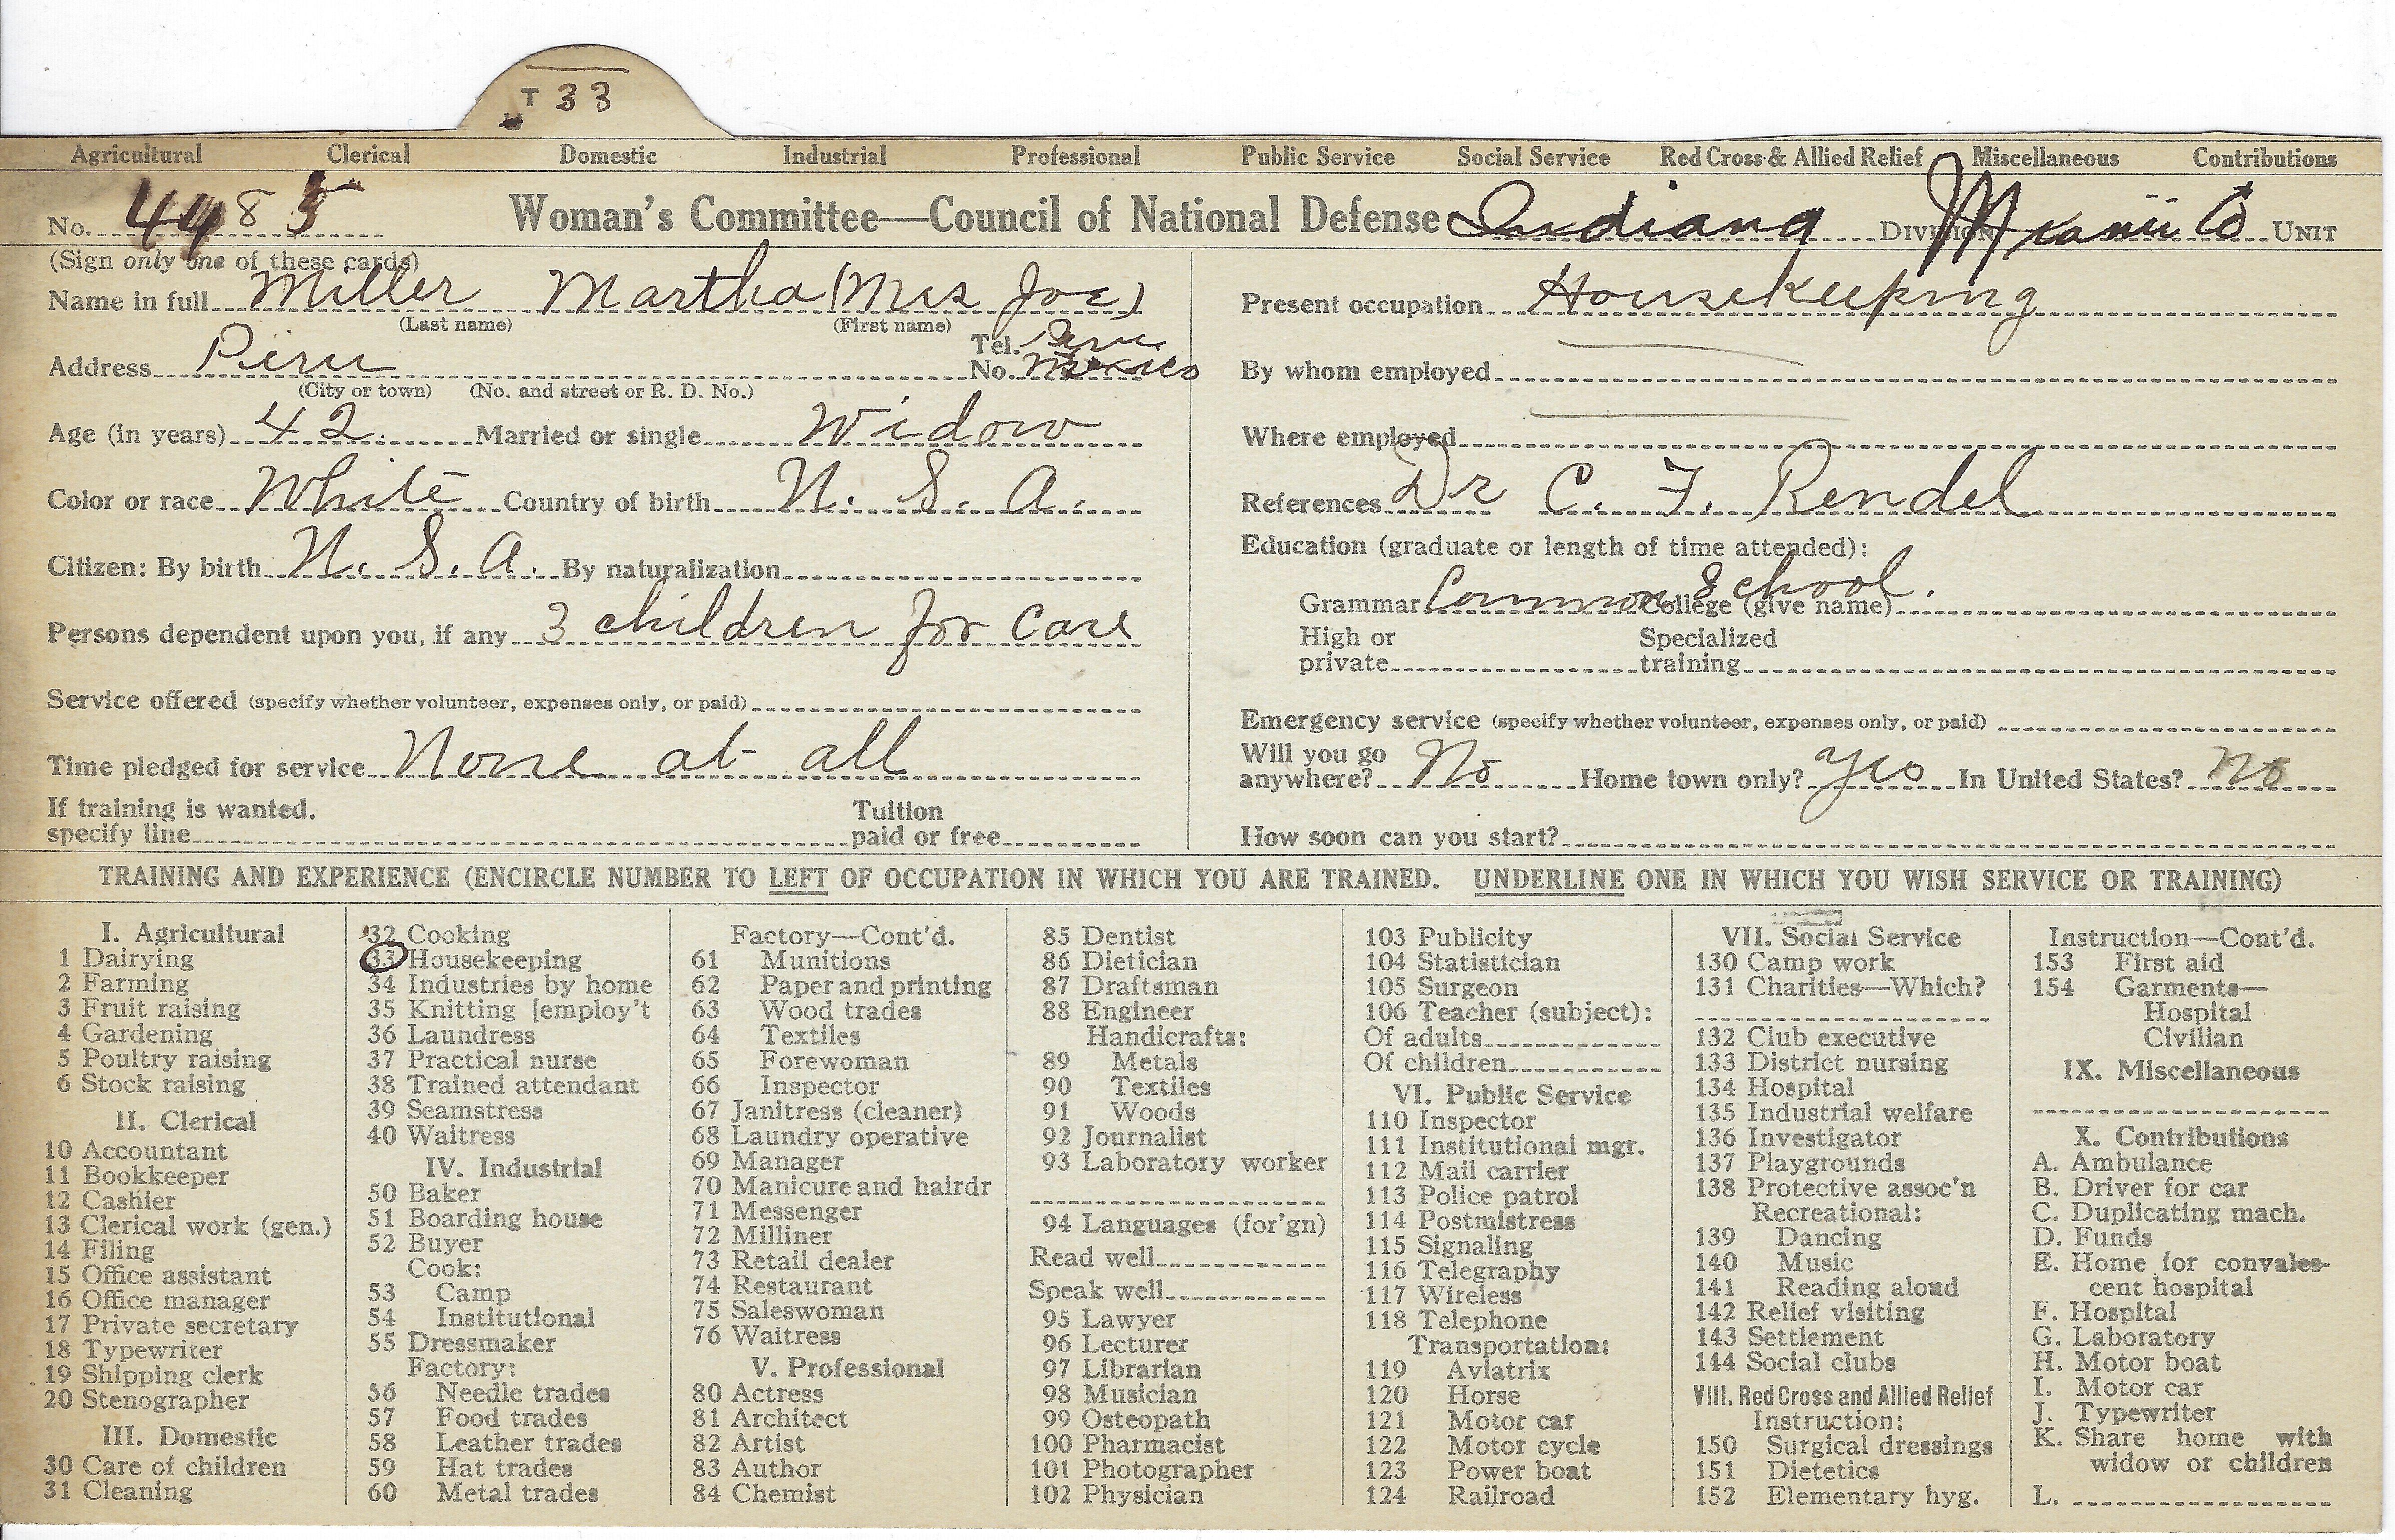 T 33
Agricultural Clerical Domestic Industrial Professional Public Service Social Service Red Cross & Allied Relief Miscellaneous Contributions
No. 4485 Woman's Committee—Council of National Defense Indiana Division Miami Co Unit
(Sign only one of these cards)
Name in full Miller Martha (Mrs Joe)
(Last name) (First name)
Address Peru Tel. No. Peru Mexico
(City or town) (No. and street or R. D. No.)
Age (in years) 42. Married or single Widow
Color or race White Country of birth U. S. A.
Citizen: By birth U. S. A. By naturalization
Persons dependent upon you, if any 3 children for care
Service offered (specify whether volunteer, expenses only, or paid)
Time pledged for service None at all
If training is wanted, specify line Tuition paid or free
Present occupation Housekeeping
By whom employed
Where employed
References Dr C. F. Rendel
Education (graduate or length of time attended):
Grammar Common School. College (give name)
High or private Specialized training
Emergency service (specify whether volunteer, expenses only, or paid)
Will you go anywhere? No Home town only? Yes In United States? No
How soon can you start?
TRAINING AND EXPERIENCE (ENCIRCLE NUMBER TO LEFT OF OCCUPATION IN WHICH YOU ARE TRAINED. UNDERLINE ONE IN WHICH YOU WISH SERVICE OR TRAINING)
I. Agricultural
1 Dairying
2 Farming
3 Fruit raising
4 Gardening
5 Poultry raising
6 Stock raising
II. Clerical
10 Accountant
11 Bookkeeper
12 Cashier
13 Clerical work (gen.)
14 Filing
15 Office assistant
16 Office manager
17 Private secretary
18 Typewriter
19 Shipping clerk
20 Stenographer
III. Domestic
30 Care of children
31 Cleaning
32 Cooking
33 Housekeeping
34 Industries by home
35 Knitting [employ't
36 Laundress
37 Practical nurse
38 Trained attendant
39 Seamstress
40 Waitress
IV. Industrial
50 Baker
51 Boarding house
52 Buyer
Cook:
53 Camp
54 Institutional
55 Dressmaker
Factory:
56 Needle trades
57 Food trades
58 Leather trades
59 Hat trades
60 Metal trades
Factory—Cont'd.
61 Munitions
62 Paper and printing
63 Wood trades
64 Textiles
65 Forewoman
66 Inspector
67 Janitress (cleaner)
68 Laundry operative
69 Manager
70 Manicure and hairdr
71 Messenger
72 Milliner
73 Retail dealer
74 Restaurant
75 Saleswoman
76 Waitress
V. Professional
80 Actress
81 Architect
82 Artist
83 Author
84 Chemist
85 Dentist
86 Dietician
87 Draftsman
88 Engineer
Handicrafts:
89 Metals
90 Textiles
91 Woods
92 Journalist
93 Laboratory worker
94 Languages (for'gn)
Read well
Speak well
95 Lawyer
96 Lecturer
97 Librarian
98 Musician
99 Osteopath
100 Pharmacist
101 Photographer
102 Physician
103 Publicity
104 Statistician
105 Surgeon
106 Teacher (subject):
Of adults
Of children
VI. Public Service
110 Inspector
111 Institutional mgr.
112 Mail carrier
113 Police patrol
114 Postmistress
115 Signaling
116 Telegraphy
117 Wireless
118 Telephone
Transportation:
119 Aviatrix
120 Horse
121 Motor car
122 Motor cycle
123 Power boat
124 Railroad
VII. Social Service
130 Camp work
131 Charities—Which?
132 Club executive
133 District nursing
134 Hospital
135 Industrial welfare
136 Investigator
137 Playgrounds
138 Protective assoc'n
Recreational:
139 Dancing
140 Music
141 Reading aloud
142 Relief visiting
143 Settlement
144 Social clubs
VIII. Red Cross and Allied Relief
Instruction:
150 Surgical dressings
151 Dietetics
152 Elementary hyg.
Instruction—Cont'd.
153 First aid
154 Garments—
Hospital
Civilian
IX. Miscellaneous
X. Contributions
A. Ambulance
B. Driver for car
C. Duplicating mach.
D. Funds
E. Home for convales-
cent hospital
F. Hospital
G. Laboratory
H. Motor boat
I. Motor car
J. Typewriter
K. Share home with
widow or children
L.